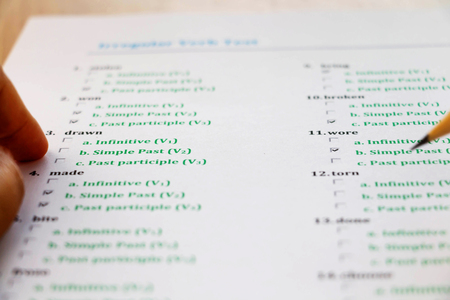 Irregular Verb Test
a. Infinitive (V1)
b. Simple Past (V2)
c. Past participle (V3)
2. won
a. Infinitive (V1)
b. Simple Past (V2)
c. Past participle (V3)
3. drawn
a. Infinitive (V1)
b. Simple Past (V2)
c. Past participle (V3)
4. made
a. Infinitive (V1)
b. Simple Past (V2)
c. Past participle (V3)
bite
a. Infinitive (V1)
b. Simple Past (V2)
c. Past participle (V3)
9. bring
a. Infinitive
b. Simple Past
c. Past participle
10. broken
a. Infinitive (V1)
b. Simple Past (V2)
c. Past participle
11. wore
a. Infinitive (V1)
b. Simple Past (V2)
c. Past participle (V3)
12. torn
a. Infinitive (V1)
b. Simple Past (V2)
c. Past participle (V3)
13. done
a. Infinitive
b. Simple Past
c. Past participle